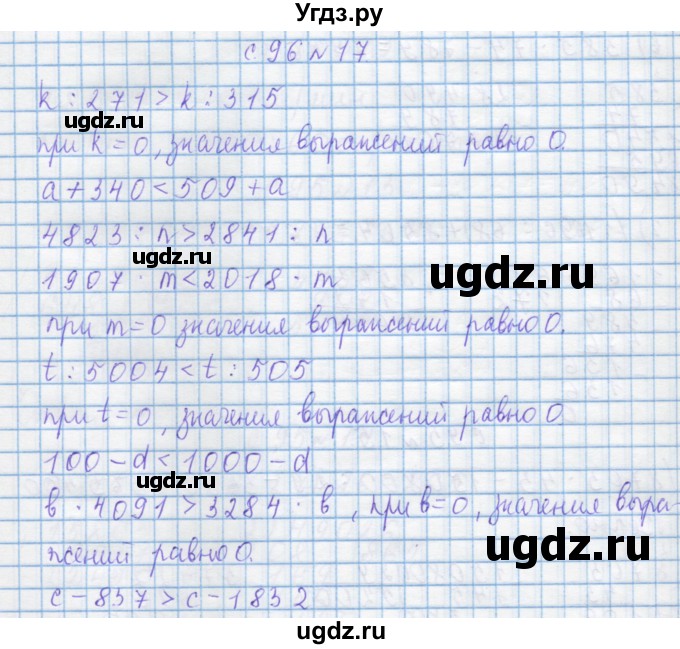 Угдз.ру
с. 96 № 17
k : 271 > k : 315
ugdz.ru
при k = 0, значения выражений равно 0.
a + 340 < 509 + a
4823 : n > 2841 : n
ugdz.ru
ugdz.ru
1907 · m < 2018 · m
при m = 0 значения выражений равно 0.
t : 5004 < t : 505
при t = 0, значения выражений равно 0
100 - d < 1000 - d
ugdz.ru
в · 4091 > 3284 · в, при в = 0, значения выра-
жений равно 0.
ugdz.ru
ugdz.ru
c - 837 > c - 1832
ugdz.ru